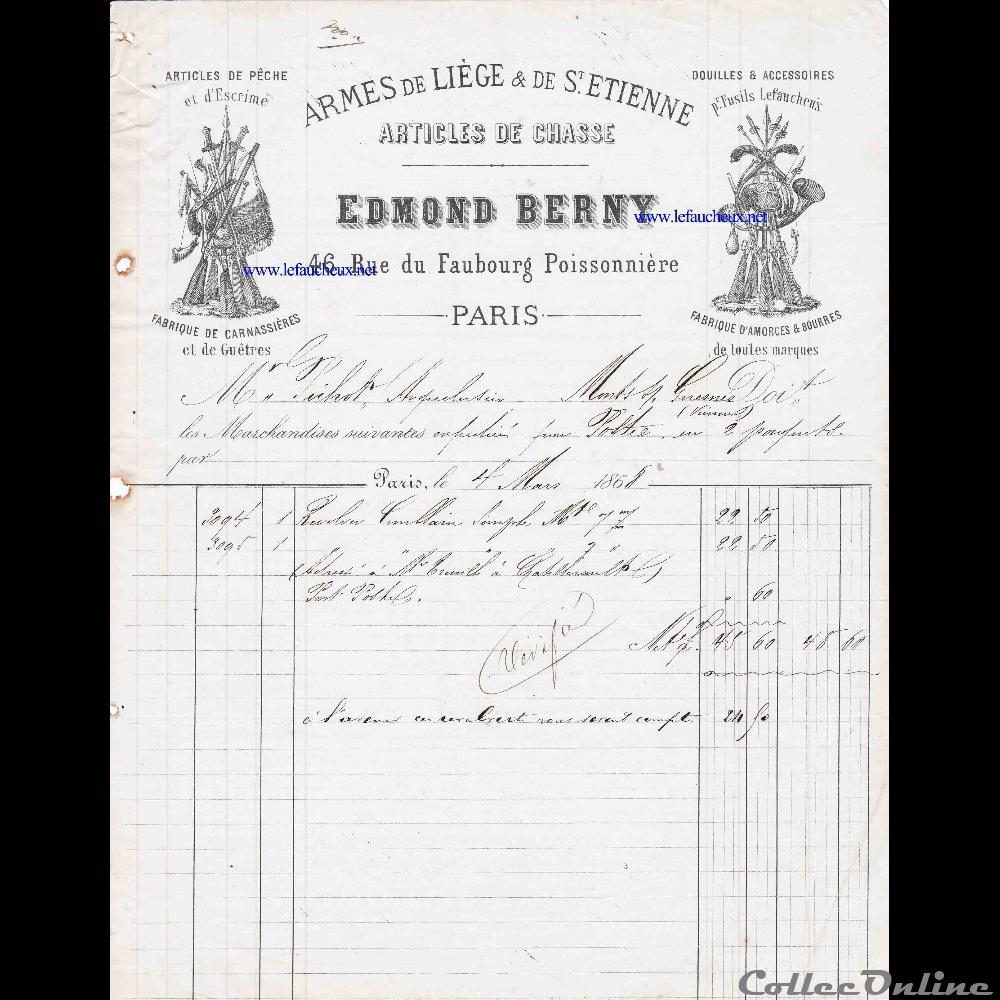 ARTICLES DE PÊCHE
et d'Escrime
ARMES DE LIÈGE & DE ST. ETIENNE
ARTICLES DE CHASSE
DOUILLES & ACCESSOIRES
pr. Fusils Lefaucheux
EDMOND BERNY
www.lefaucheux.net
46, Rue du Faubourg Poissonnière
www.lefaucheux.net
PARIS
FABRIQUE DE CARNASSIÈRES
et de Guêtres
FABRIQUE D'AMORCES & BOURRES
de toutes marques
Mr Arquebusier Monts s/ Guesnes Doit
(Vienne)
les Marchandises suivantes expédiées Postes en 2 paquets
par
Paris, le 4 Mars 1868
3094 1 Revolver simple 7 m/m 22 50
3095 1 " 22 50
à Mr à Chatellerault)
Port Postes. " 60
Net 45 60 45 60
Vérifié
à l'avenir ces revolvers vous seront compté 24 50
CollecOnline